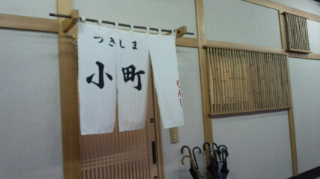 つきしま
小町